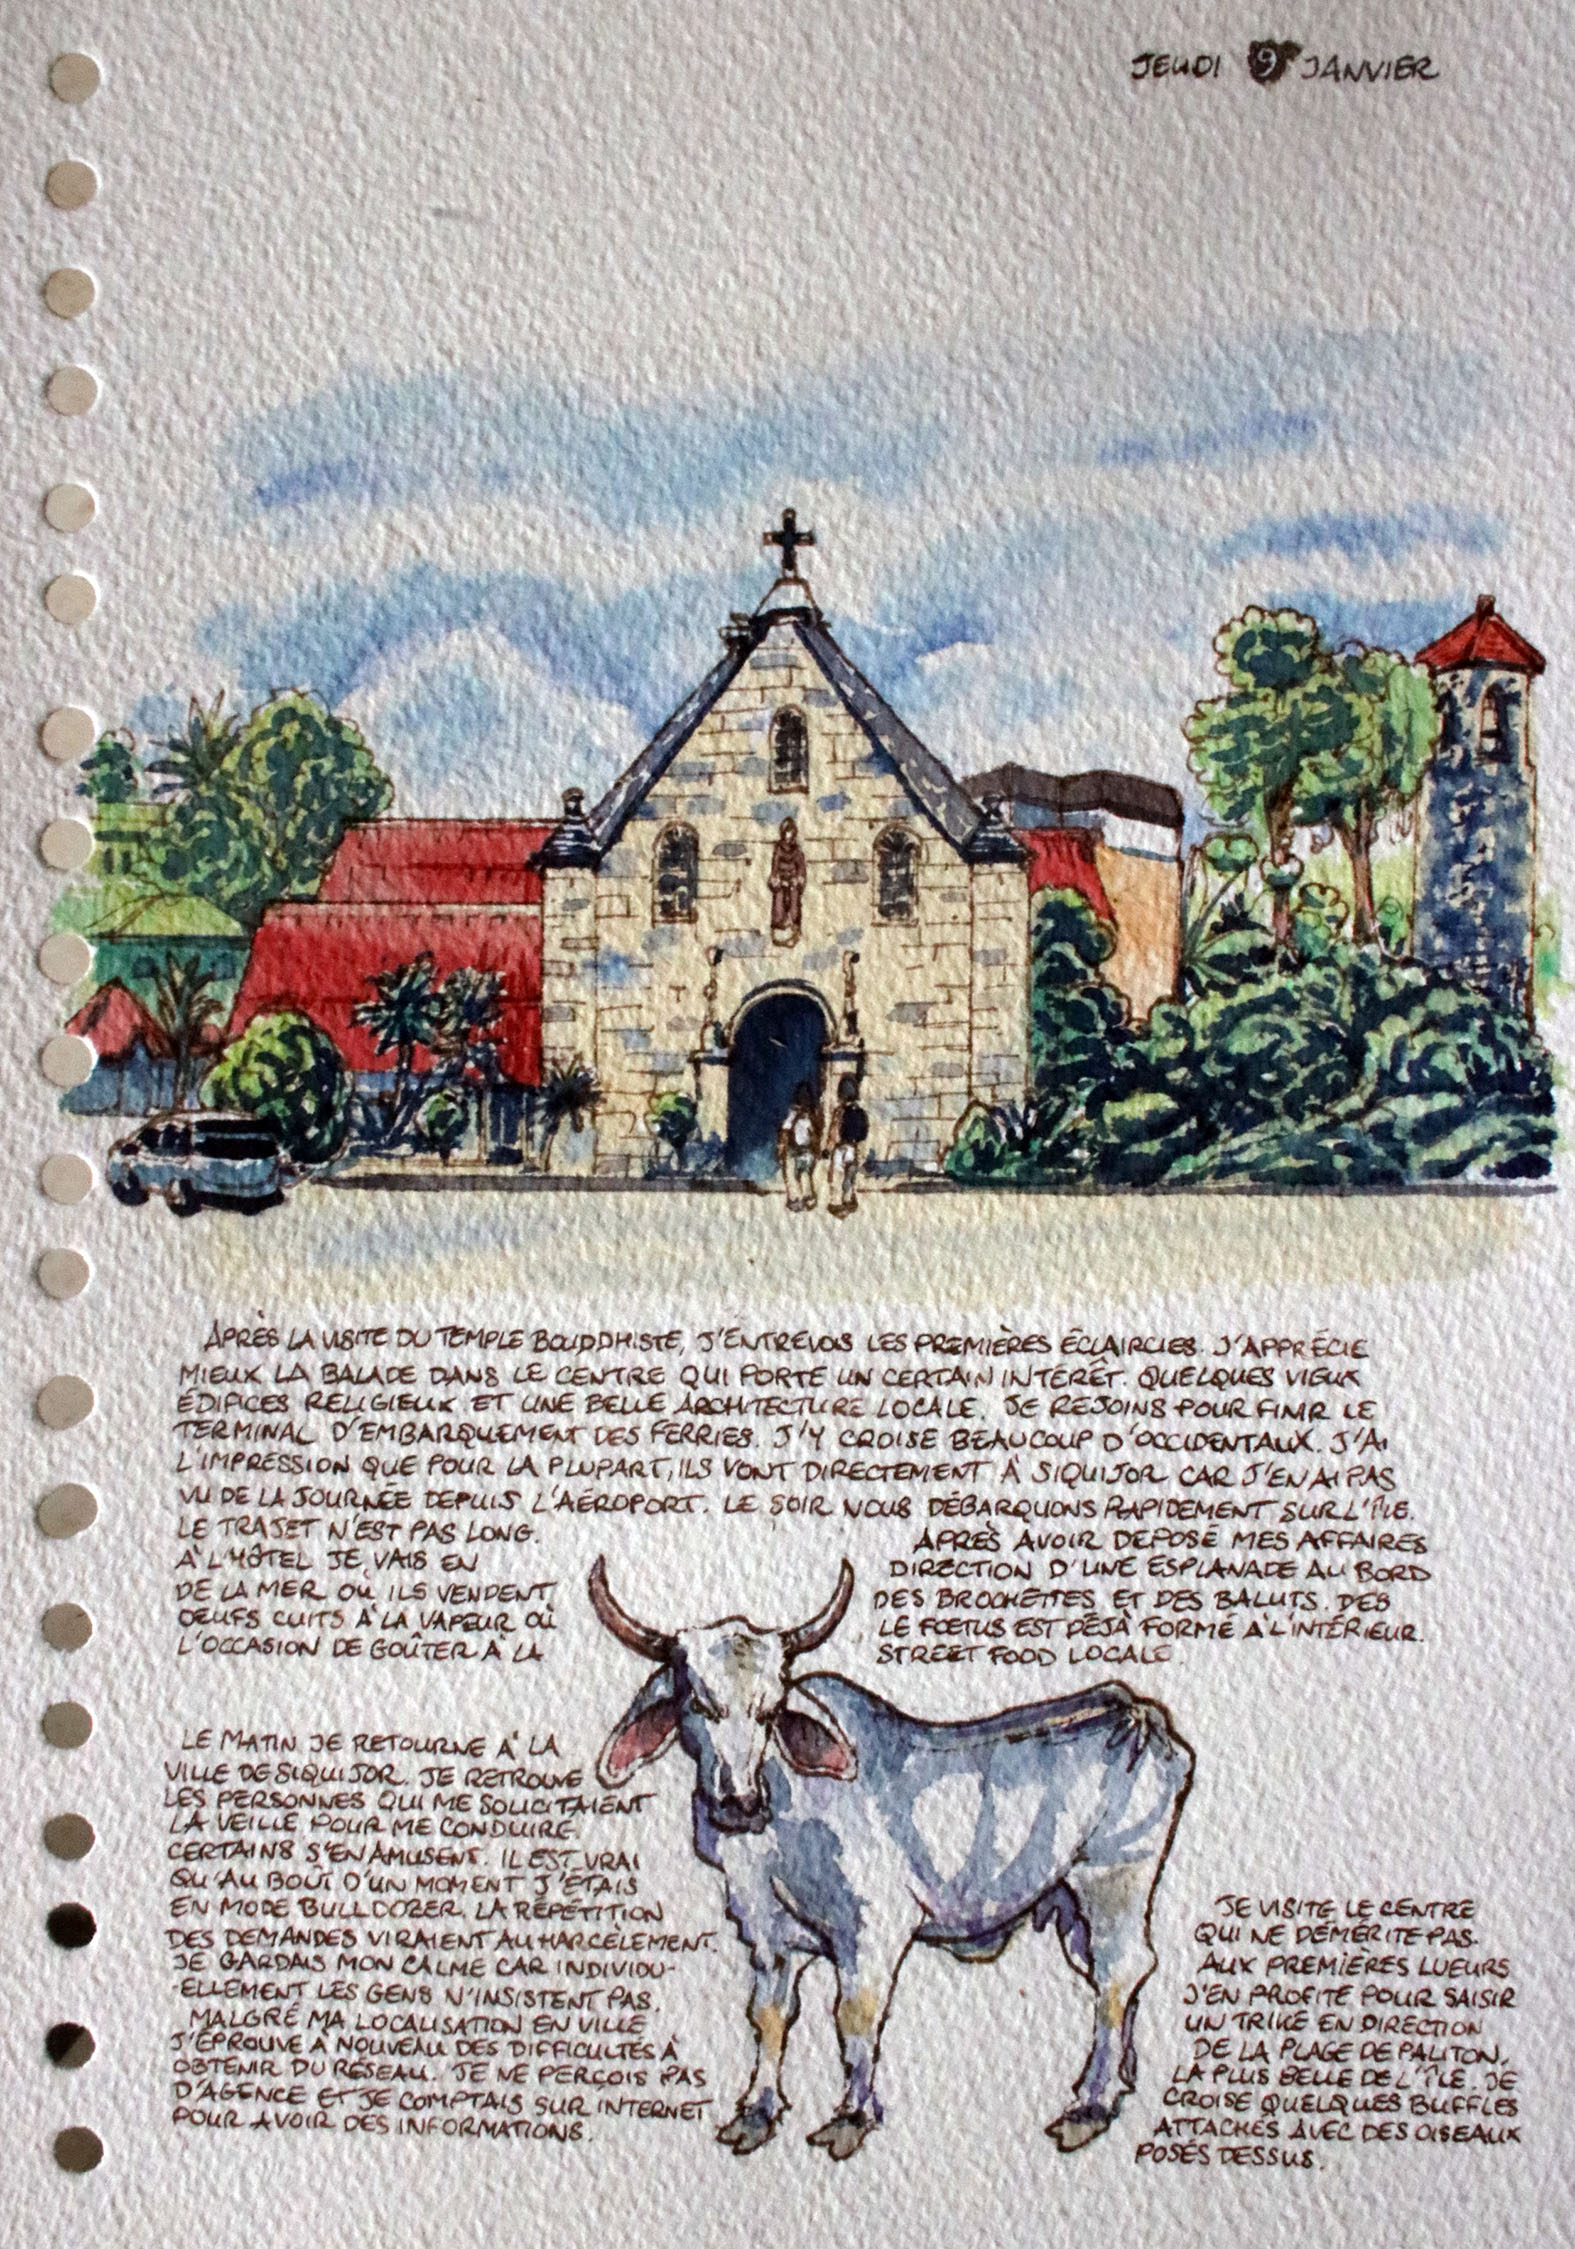 JEUDI 9 JANVIER
APRÈS LA VISITE DU TEMPLE BOUDDHISTE, J'ENTREVOIS LES PREMIÈRES ÉCLAIRCIES. J'APPRÉCIE
MIEUX LA BALADE DANS LE CENTRE QUI PORTE UN CERTAIN INTÉRÊT. QUELQUES VIEUX
ÉDIFICES RELIGIEUX ET UNE BELLE ARCHITECTURE LOCALE. JE REJOINS POUR FINIR LE
TERMINAL D'EMBARQUEMENT DES FERRIES. J'Y CROISE BEAUCOUP D'OCCIDENTAUX. J'AI
L'IMPRESSION QUE POUR LA PLUPART, ILS VONT DIRECTEMENT À SIQUIJOR CAR J'EN AI PAS
VU DE LA JOURNÉE DEPUIS L'AÉROPORT. LE SOIR NOUS DÉBARQUONS RAPIDEMENT SUR L'ÎLE.
LE TRAJET N'EST PAS LONG. APRÈS AVOIR DEPOSÉ MES AFFAIRES
À L'HÔTEL JE VAIS EN DIRECTION D'UNE ESPLANADE AU BORD
DE LA MER OÙ ILS VENDENT DES BROCHETTES ET DES BALUTS. DES
OEUFS CUITS À LA VAPEUR OÙ LE FOETUS EST DÉJÀ FORMÉ À L'INTÉRIEUR.
L'OCCASION DE GOÛTER À LA STREET FOOD LOCALE.
LE MATIN JE RETOURNE À LA
VILLE DE SIQUIJOR. JE RETROUVE
LES PERSONNES QUI ME SOLICITAIENT
LA VEILLE POUR ME CONDUIRE.
CERTAINS S'EN AMUSENT. IL EST VRAI
QU'AU BOÛT D'UN MOMENT J'ÉTAIS
EN MODE BULLDOZER. LA RÉPÉTITION
DES DEMANDES VIRAIENT AU HARCÈLEMENT.
JE GARDAIS MON CALME CAR INDIVIDU-
-ELLEMENT LES GENS N'INSISTENT PAS.
MALGRÉ MA LOCALISATION EN VILLE
J'ÉPROUVE À NOUVEAU DES DIFFICULTÉS À
OBTENIR DU RÉSEAU. JE NE PERÇOIS PAS
D'AGENCE ET JE COMPTAIS SUR INTERNET
POUR AVOIR DES INFORMATIONS.
JE VISITE LE CENTRE
QUI NE DÉMÉRITE PAS.
AUX PREMIÈRES LUEURS
J'EN PROFITE POUR SAISIR
UN TRIKE EN DIRECTION
DE LA PLAGE DE PALITON.
LA PLUS BELLE DE L'ÎLE. JE
CROISE QUELQUES BUFFLES
ATTACHÉS AVEC DES OISEAUX
POSÉS DESSUS.